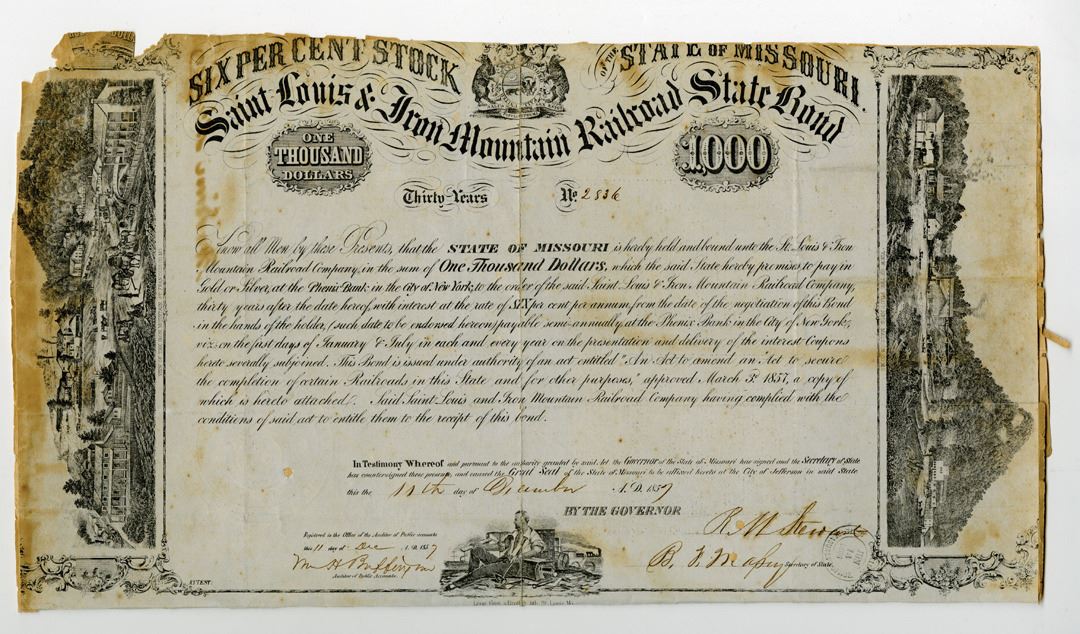 SIX PER CENT STOCK OF THE STATE OF MISSOURI.
Saint Louis & Iron Mountain Railroad State Bond
ONE
THOUSAND
DOLLARS
1,000
Thirty-Years No. 2836
Know all Men by these Presents, that the STATE OF MISSOURI is hereby held and bound unto the St. Louis & Iron
Mountain Railroad Company, in the sum of One Thousand Dollars, which the said State hereby promises to pay in
Gold or Silver, at the Phenix Bank in the City of New York, to the order of the said Saint Louis & Iron Mountain Railroad Company,
thirty years after the date hereof, with interest at the rate of SIX per cent per annum, from the date of the negotiation of this Bond
in the hands of the holder, (such date to be endorsed hereon) payable semi-annually, at the Phenix Bank in the City of New York,
viz: on the first days of January & July in each and every year on the presentation and delivery of the interest Coupons
hereto severally subjoined. This Bond is issued under authority of an act entitled "An Act to amend an Act to secure
the completion of certain Railroads in this State and for other purposes," approved March 3d 1857, a copy of
which is hereto attached. Said Saint Louis and Iron Mountain Railroad Company having complied with the
conditions of said act to entitle them to the receipt of this bond.
In Testimony Whereof and pursuant to the authority granted by said Act the Governor of the State of Missouri has signed and the Secretary of State
has countersigned these presents, and caused the Great Seal of the State of Missouri to be affixed hereto at the City of Jefferson in said State
this the 11th day of December A.D. 1857
BY THE GOVERNOR
R M Stewart
Registered in the Office of the Auditor of Public accounts
this 11 day of Dec A.D. 1857
Wm H Buffington
Auditor of Public Accounts.
B. F. Massey Secretary of State.
ATTEST: